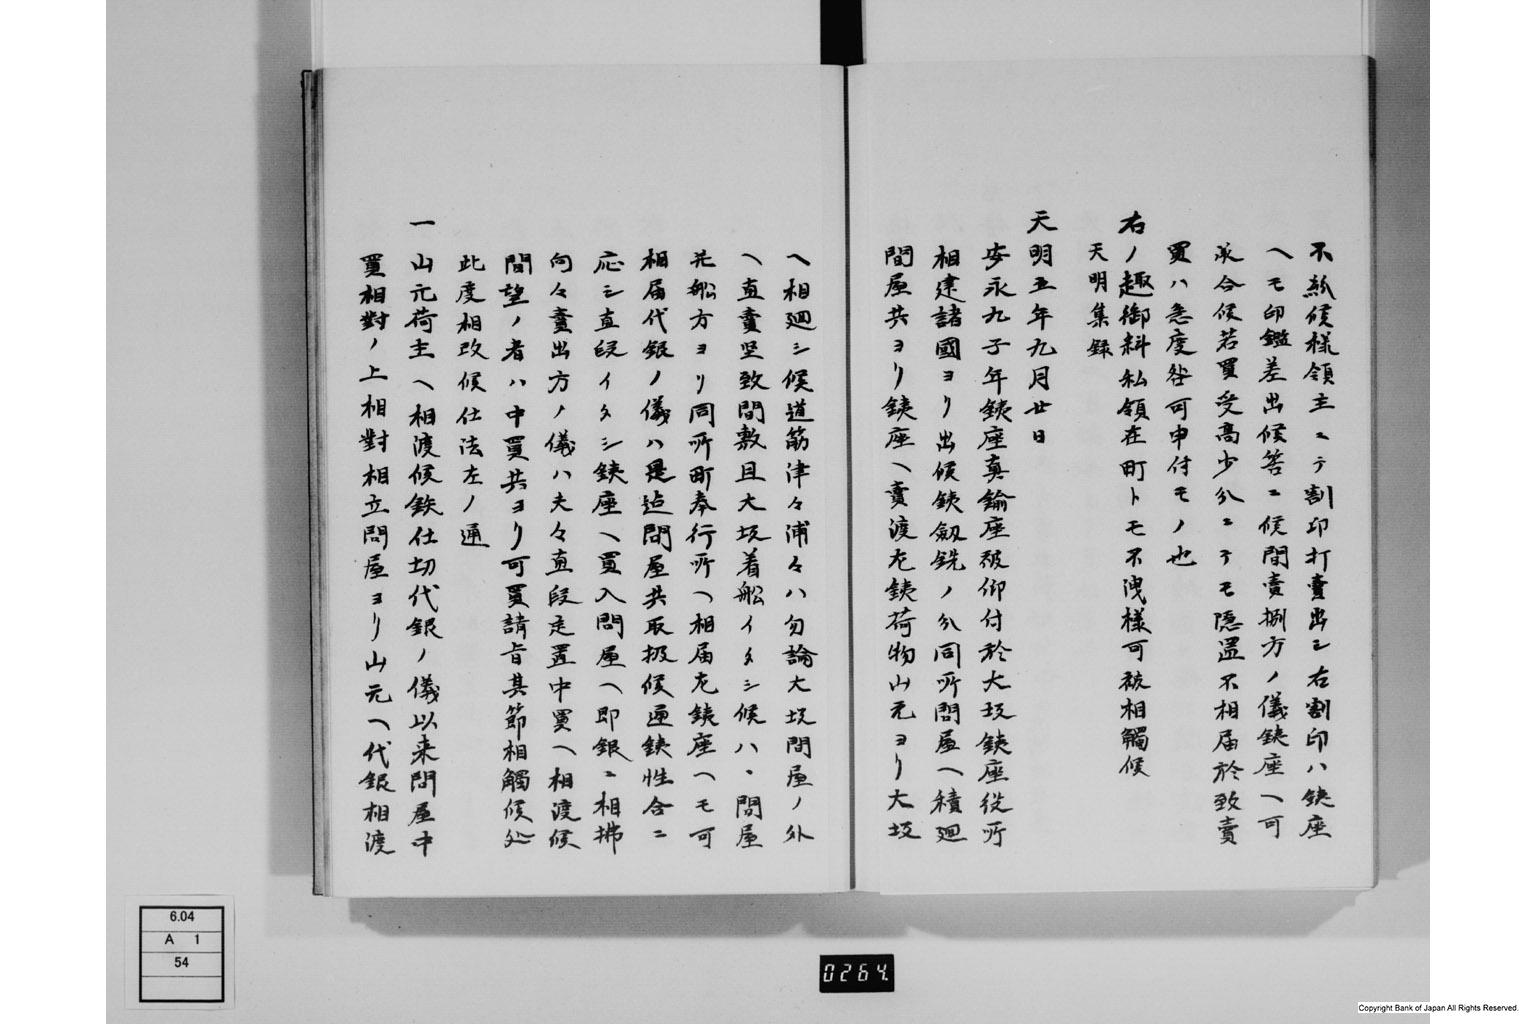 不紛候様領主ニテ割印打賣出シ右割印ハ鉄座
ヘモ印鑑差出候答ニ候間賣捌方ノ儀鉄座ヘ可
承合候若買受高少分ニテモ隠置不相届於致賣
買ハ急度咎可申付モノ也
右ノ趣御料私領在町トモ不洩様可被相觸候
天明集録
天明五年九月廿日
安永九子年鉄座真鍮座被仰付於大坂鉄座役所
相建諸國ヨリ出候鉄釼銑ノ分同所問屋ヘ積廻
問屋共ヨリ鉄座ヘ賣渡尤鉄荷物山元ヨリ大坂
ヘ相廻シ候道筋津々浦々ハ勿論大坂問屋ノ外
ヘ直賣堅致間敷且大坂着船イタシ候ハヽ問屋
并船方ヨリ同所町奉行所ヘ相届尤鉄座ヘモ可
相届代銀ノ儀ハ是迠問屋共取扱候通鉄性合ニ
応シ直段イタシ鉄座ヘ買入問屋ヘ即銀ニ相拂
向々賣出方ノ儀ハ夫々直段定置中買ヘ相渡候
間望ノ者ハ中買共ヨリ可買請旨其節相觸候処
此度相改候仕法左ノ通
一山元荷主ヘ相渡候鉄仕切代銀ノ儀以来問屋中
買相對ノ上相對相立問屋ヨリ山元ヘ代銀相渡
6.04
A 1
54
0264
Copyright Bank of Japan All Rights Reserved.